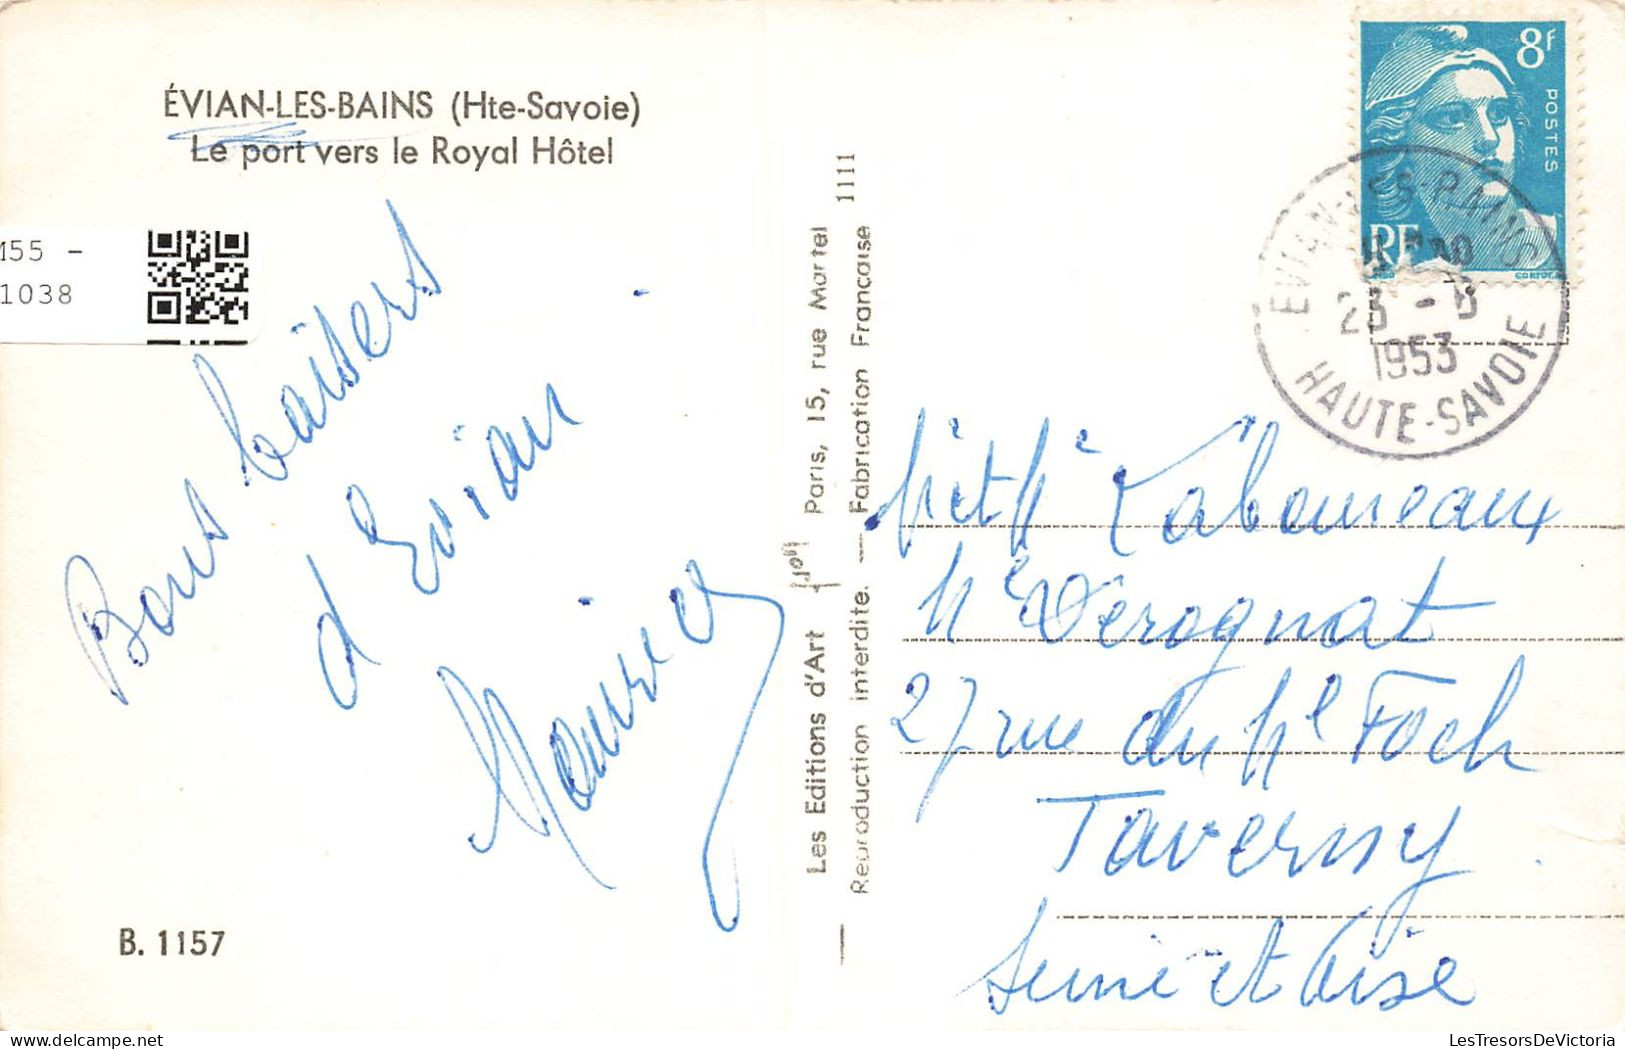 ÉVIAN-LES-BAINS (Hte-Savoie)
Le port vers le Royal Hôtel
M55 -
1038
Bons baisers
d'Evian
Maurice
B. 1157
Les Editions d'Art Yvon Paris, 15, rue Martel
Reproduction interdite. — Fabrication Française 1111
8f
POSTES
RF
EVIAN-LES-BAINS
23 -
1953
HAUTE-SAVOIE
Laboureaux
Me Verognat
27 rue du Ml Foch
Taverny
Seine et Oise
LesTresorsDeVictoria
www.delcampe.net